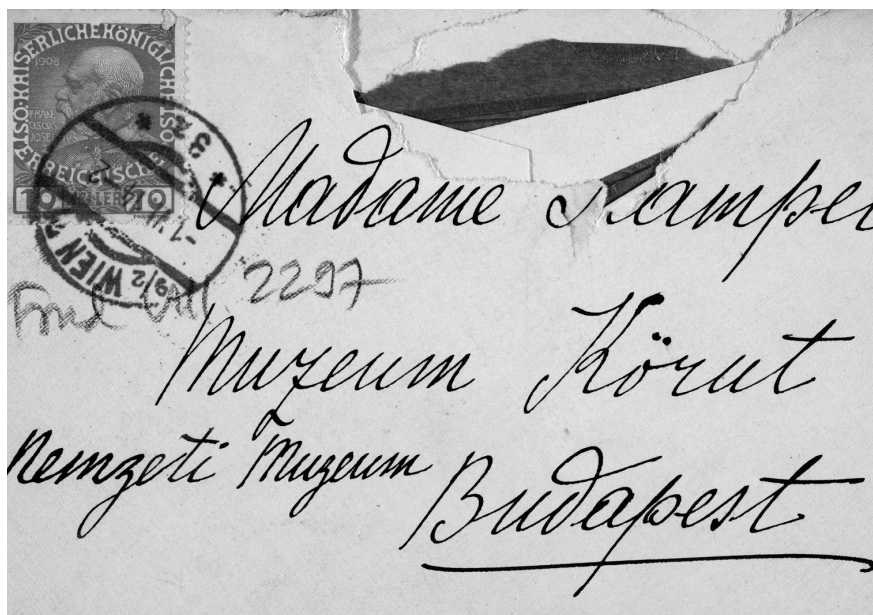 KAISERLICHE KÖNIGLICHE ÖSTERREICHISCHE
1908
FRAN
CISCVS
JOSE
10 HELLER 10
WIEN
9/2
Madame Kamper
2297
Muzeum Körut
Nemzeti Muzeum
Budapest